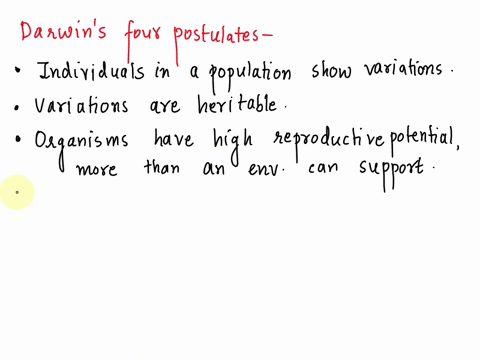 Darwin's four postulates-
• Individuals in a population show variations.
• Variations are heritable.
• Organisms have high reproductive potential,
more than an env. can support.
•